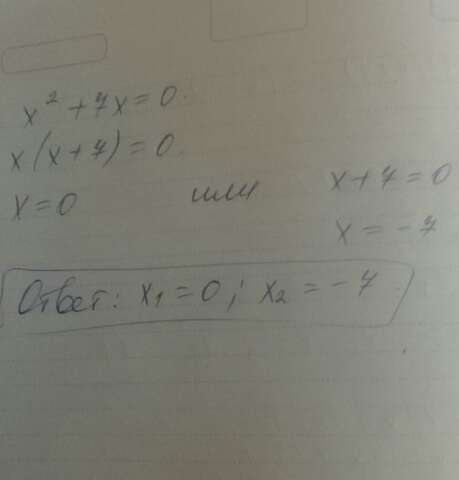 x² + 7x = 0.
x(x + 7) = 0.
x = 0 или x + 7 = 0
x = -7
Ответ: x₁ = 0; x₂ = -7